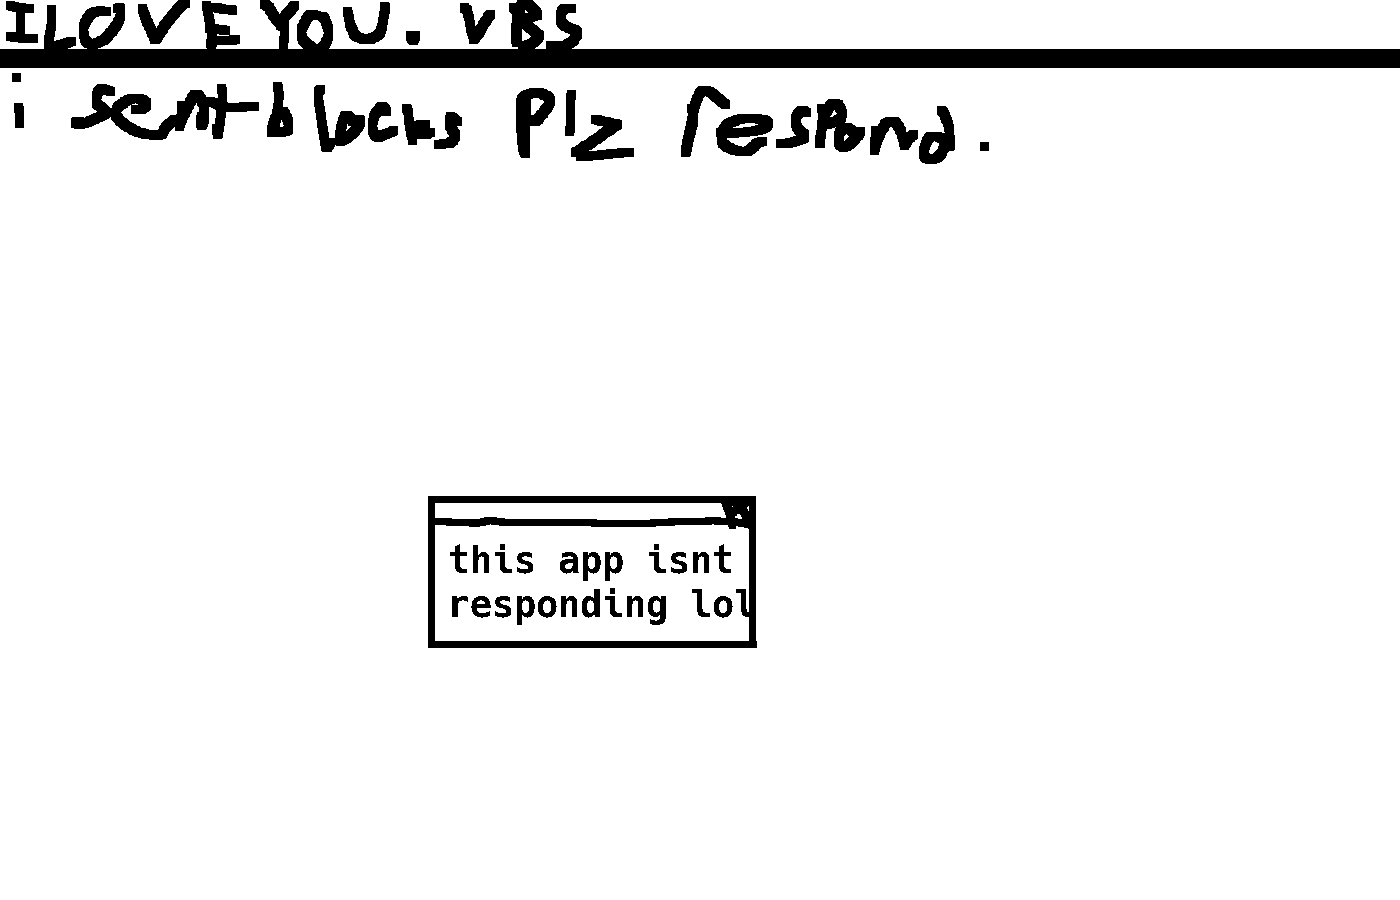 ILOVEYOU. VBS
i sent blocks Plz respond.
this app isnt
responding lol